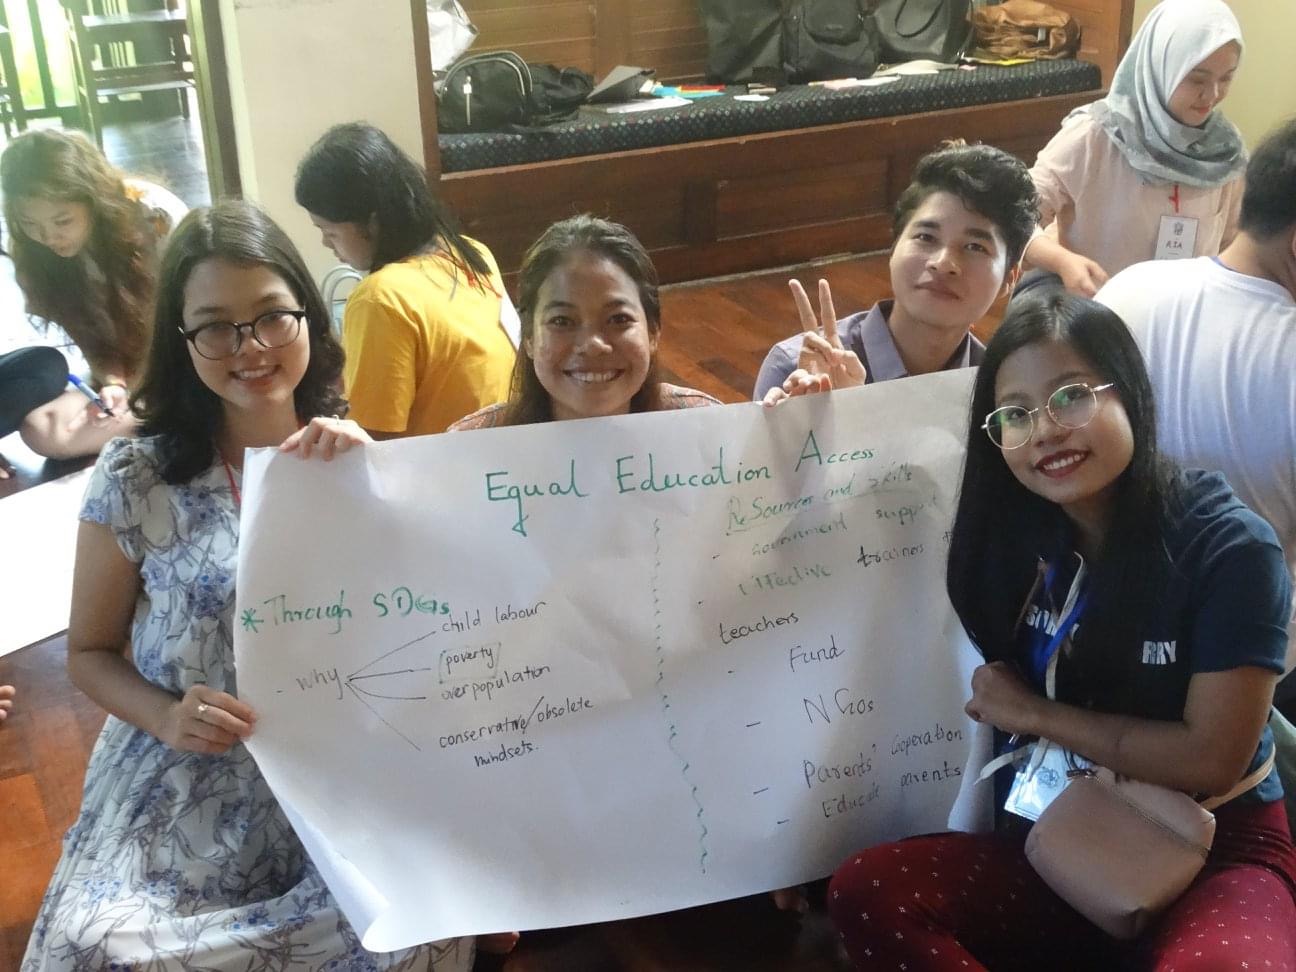 Equal Education Access
*Through SDGs
- Why
child labour
poverty
overpopulation
conservative/obsolete
mindsets.
Resources and skills
- Government support
- Effective trainers
teachers
- Fund
- NGOs
- Parents' Cooperation
- Educate parents
RIA